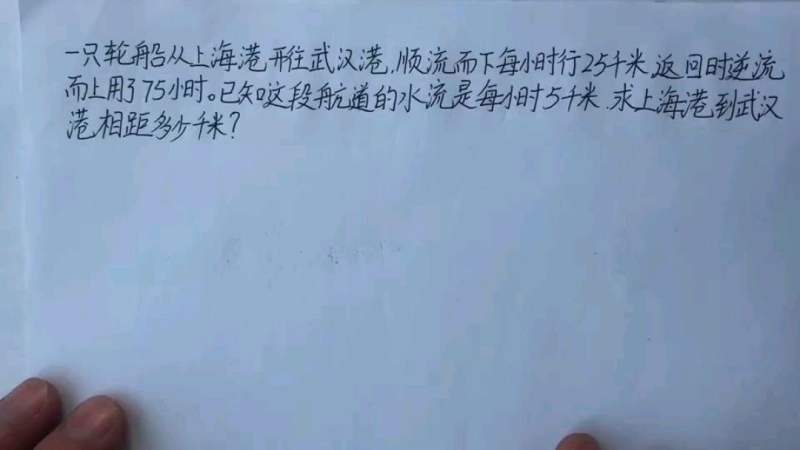 一只轮船从上海港开往武汉港.顺流而下每小时行25千米.返回时逆流
而上用了75小时。已知这段航道的水流是每小时5千米.求上海港到武汉
港相距多少千米?